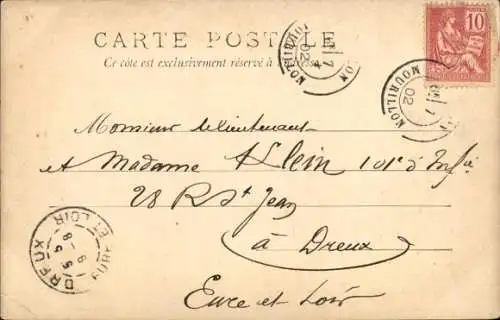 CARTE POSTALE
Ce côté est exclusivement réservé à l'adresse
10
MOURILLON
02
MOURILLON
02
Monsieur le lieutenant
et Madame Klein 101e Infie
28 R St Jean
à Dreux
Eure et Loir
DREUX
EURE ET LOIR